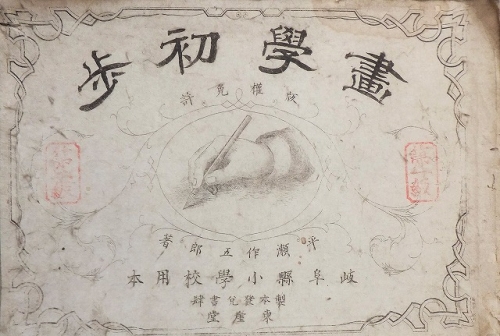 畫學初歩
版權免許
平瀬作五郎著
岐阜縣小學校用本
製本發兌書肆
東崖堂